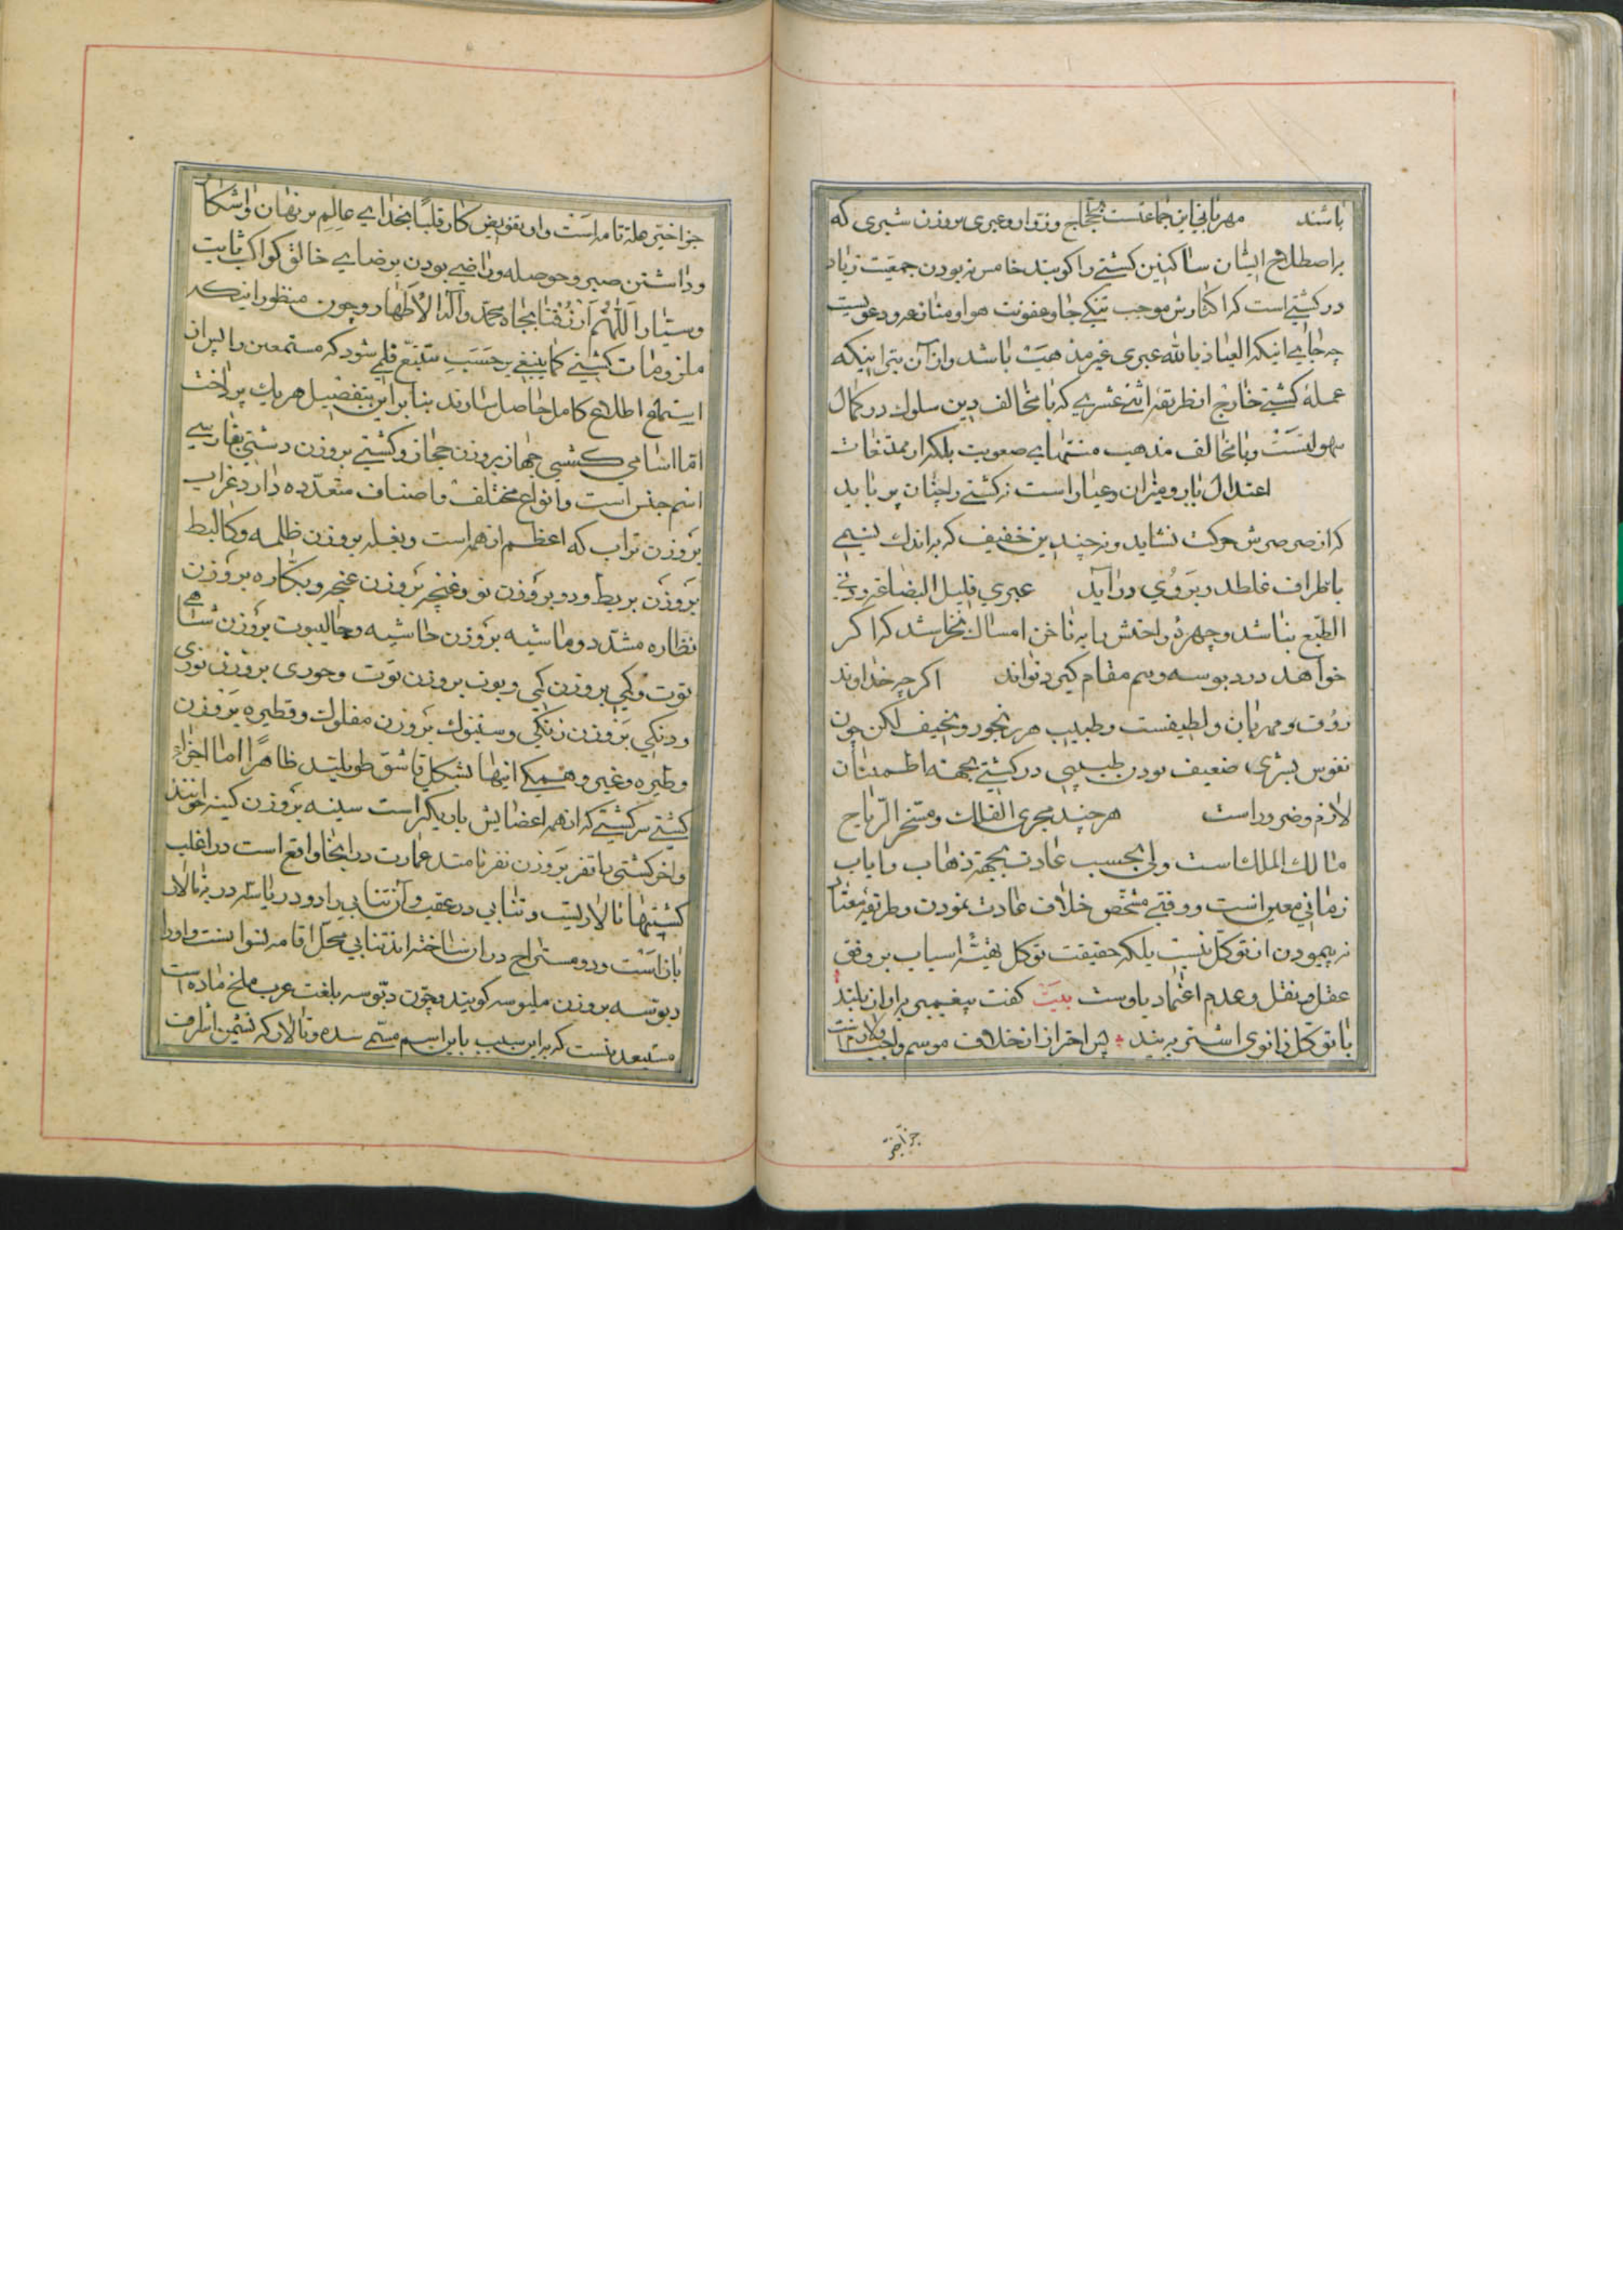 باشند مهربانی این جماعتست بحجاج و زوار و عبری بروزن شبری که
براصطلاح ایشان ساکنین کشتی را کویند خامس نه بودن جمعیت زیاد
در کشتی است که اکثارش موجب تنکی جا و عفونت هوا و
چه جایی اینکه العیاذ بالله عبری غیر مذهبت باشد و از آن بتر اینکه
عملهٔ کشتی خارج از طریقهٔ اثنی عشری که با مخالف دین سلوک در کمال
سهولتست و با مخالف مذهب منتهای صعوبت بلکه از ممتنعات
اعتدال بار و میزان و عیار است نه کشتی را چنان پر باید
که از صرصرش حرکت نشاید و نه چندین خفیف که براندک نسیمی
باطراف غلطد و بروی در آید عبری قلیل البضاعه
الطبع نباشد و چهرهٔ راحتش را به ناخن امساک نخراشد که اکر
خواهد در دبوسه و سم مقام کیرد نتواند اکرچه خداوند
رؤف و مهربان و لطیفست و طبیب هر رنجور و نحیف لکن چون
نفوس بشری ضعیف بودن طبیبی در کشتی بجهته اطمینان
لازم و ضرور است هرچند مجری الفلک و مسخر الریاح
مالک الملک است ولی بحسب عادت بجهة ذهاب و ایاب
زمانی معین است و وقتی مشخص خلاف عادت نمودن و طریقهٔ معتاد
نه پیمودن از توکل نیست بلکه حقیقت توکل تهیهٔ اسباب بر وفق
عقل و نقل و عدم اعتماد باوست بیت کفت پیغمبر براواز بلند
با توکل زانوی اشتر به بند پس احتراز از خلاف موسم واجب و لازمست
جزاخیر
جزاخیر علة تامه است و ان تفویض کار قلبًا بخدایی عالم بر نهان و اشکار
و داشتن صبر و حوصله و راضی بودن برضایی خالق کواکب ثابت
و سیار اللهم ارزقنا بجاه محمد و آله الاطهار و چون منظور اینکه
ملزومات کشتی کما ینبغی بر حسب تتبع قلمی شود که مستمعین را پس از
استماع اطلاع کامل حاصل شاید بنابراین بتفصیل هریک پرداخت
اما اسامی کشتی جهاز بروزن حجاز و کشتی بروزن دشتی بفارسی
اسم جنس است و انواع مختلف و اصناف متعدده دارد غراب
بروزن تراب که اعظم از همه است و بغله بروزن ظلمه و کالبط
بروزن بربط و دو بروزن نو و غنچه بروزن عنجر و بتکاره بروزن
نظاره مشدد و ماشیه بروزن حاشیه و جالیبوت بروزن شامی
توت وکی بروزن کی و بوت بروزن توت و حوری بروزن نوری
و دنکی بروزن زنکی و سنبوک بروزن مفلوک و قطیره بروزن
وطیره و غیره و همکی اینها بشکل قاشق طویلند ظاهرًا اما اجزاء
کشتی سر کشتی که از همه اعضایش باریکتر است سینه بروزن کینه خوانند
و اخر کشتی را تفر بروزن نفر نامند عمارت در اینجا واقع است در اغلب
کشتیها تالاریست و تنابی در عقب و آن تنابی را دو دریاست در به تالار
باز است و دو مستراح در ان ساخته اند تنابی محل اقامه نسوانست و اورا
دبوسه بروزن ملبوسه کویند و چون دبوسه بلغت عرب ملخ ماده است
مستبعد نیست که براین سبب باین اسم مسمی شده و تالار که نشیمن اشراف